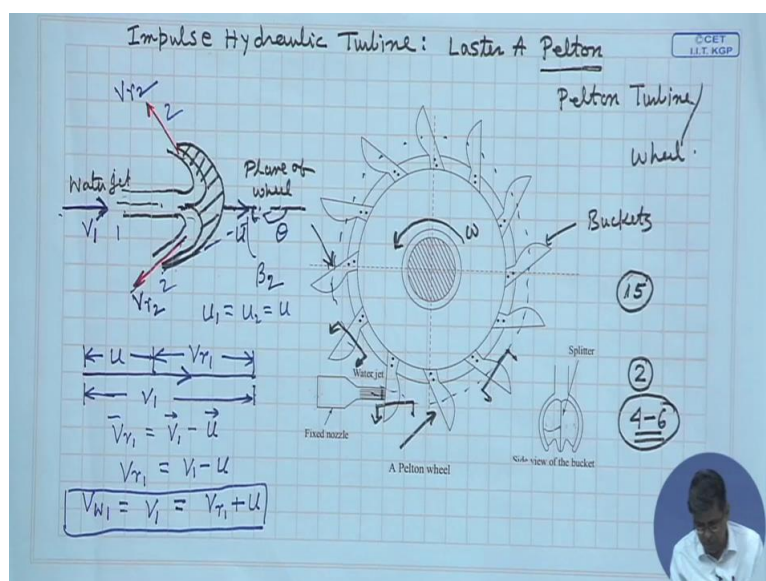 Impulse Hydraulic Turbine: Laster A Pelton
©CET
I.I.T. KGP
Pelton Turbine/
Wheel.
Vr2
2
Water jet
V1 1
Plane of
wheel
U
θ
β2
2
Vr2
U1 = U2 = U
ω
Buckets
15
U
Vr1
V1
V̄r1 = V⃗1 - U⃗
Vr1 = V1 - U
Vw1 = V1 = Vr1 + U
Water jet
Fixed nozzle
A Pelton wheel
Splitter
Side view of the bucket
2
4-6